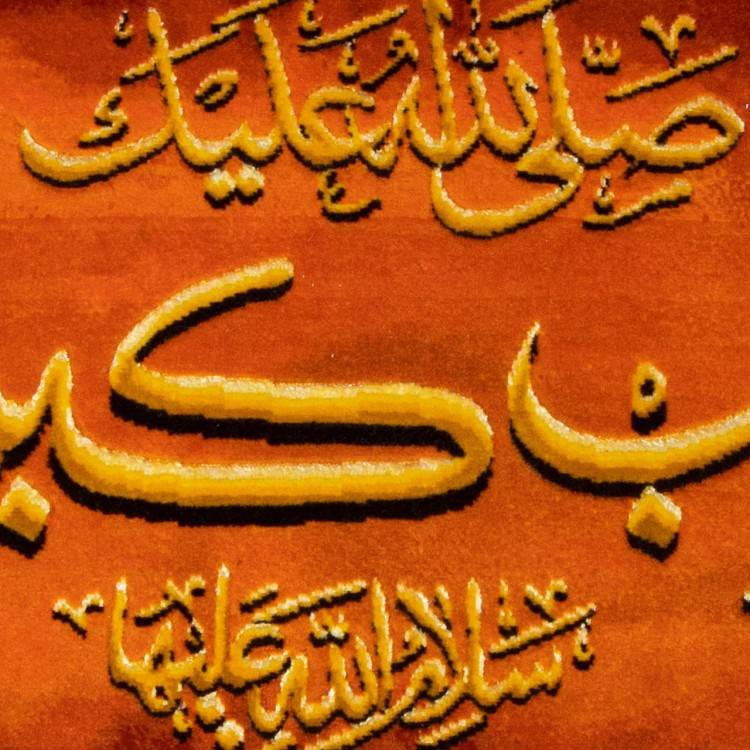 صَلَّى اللهُ عَلَيْكَ
بْ كب
سَلَامُ اللهِ عَلَيْهَا